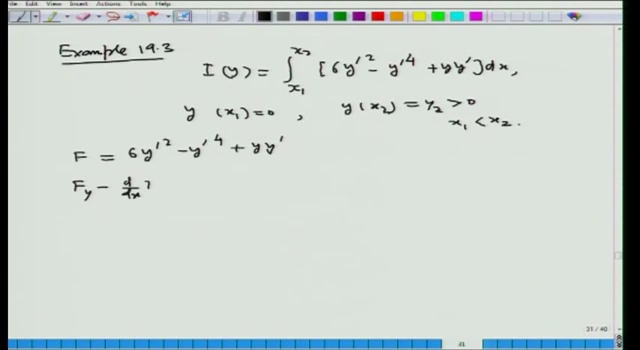 File Edit View Insert Actions Tools Help
Example 19.3
I(y) = ∫_{x₁}^{x₂} [6y'² - y'⁴ + yy']dx,
y(x₁)=0, y(x₂) = y₂ > 0
x₁ < x₂.
F = 6y'² - y'⁴ + yy'
F_y - d/dx
31 / 40